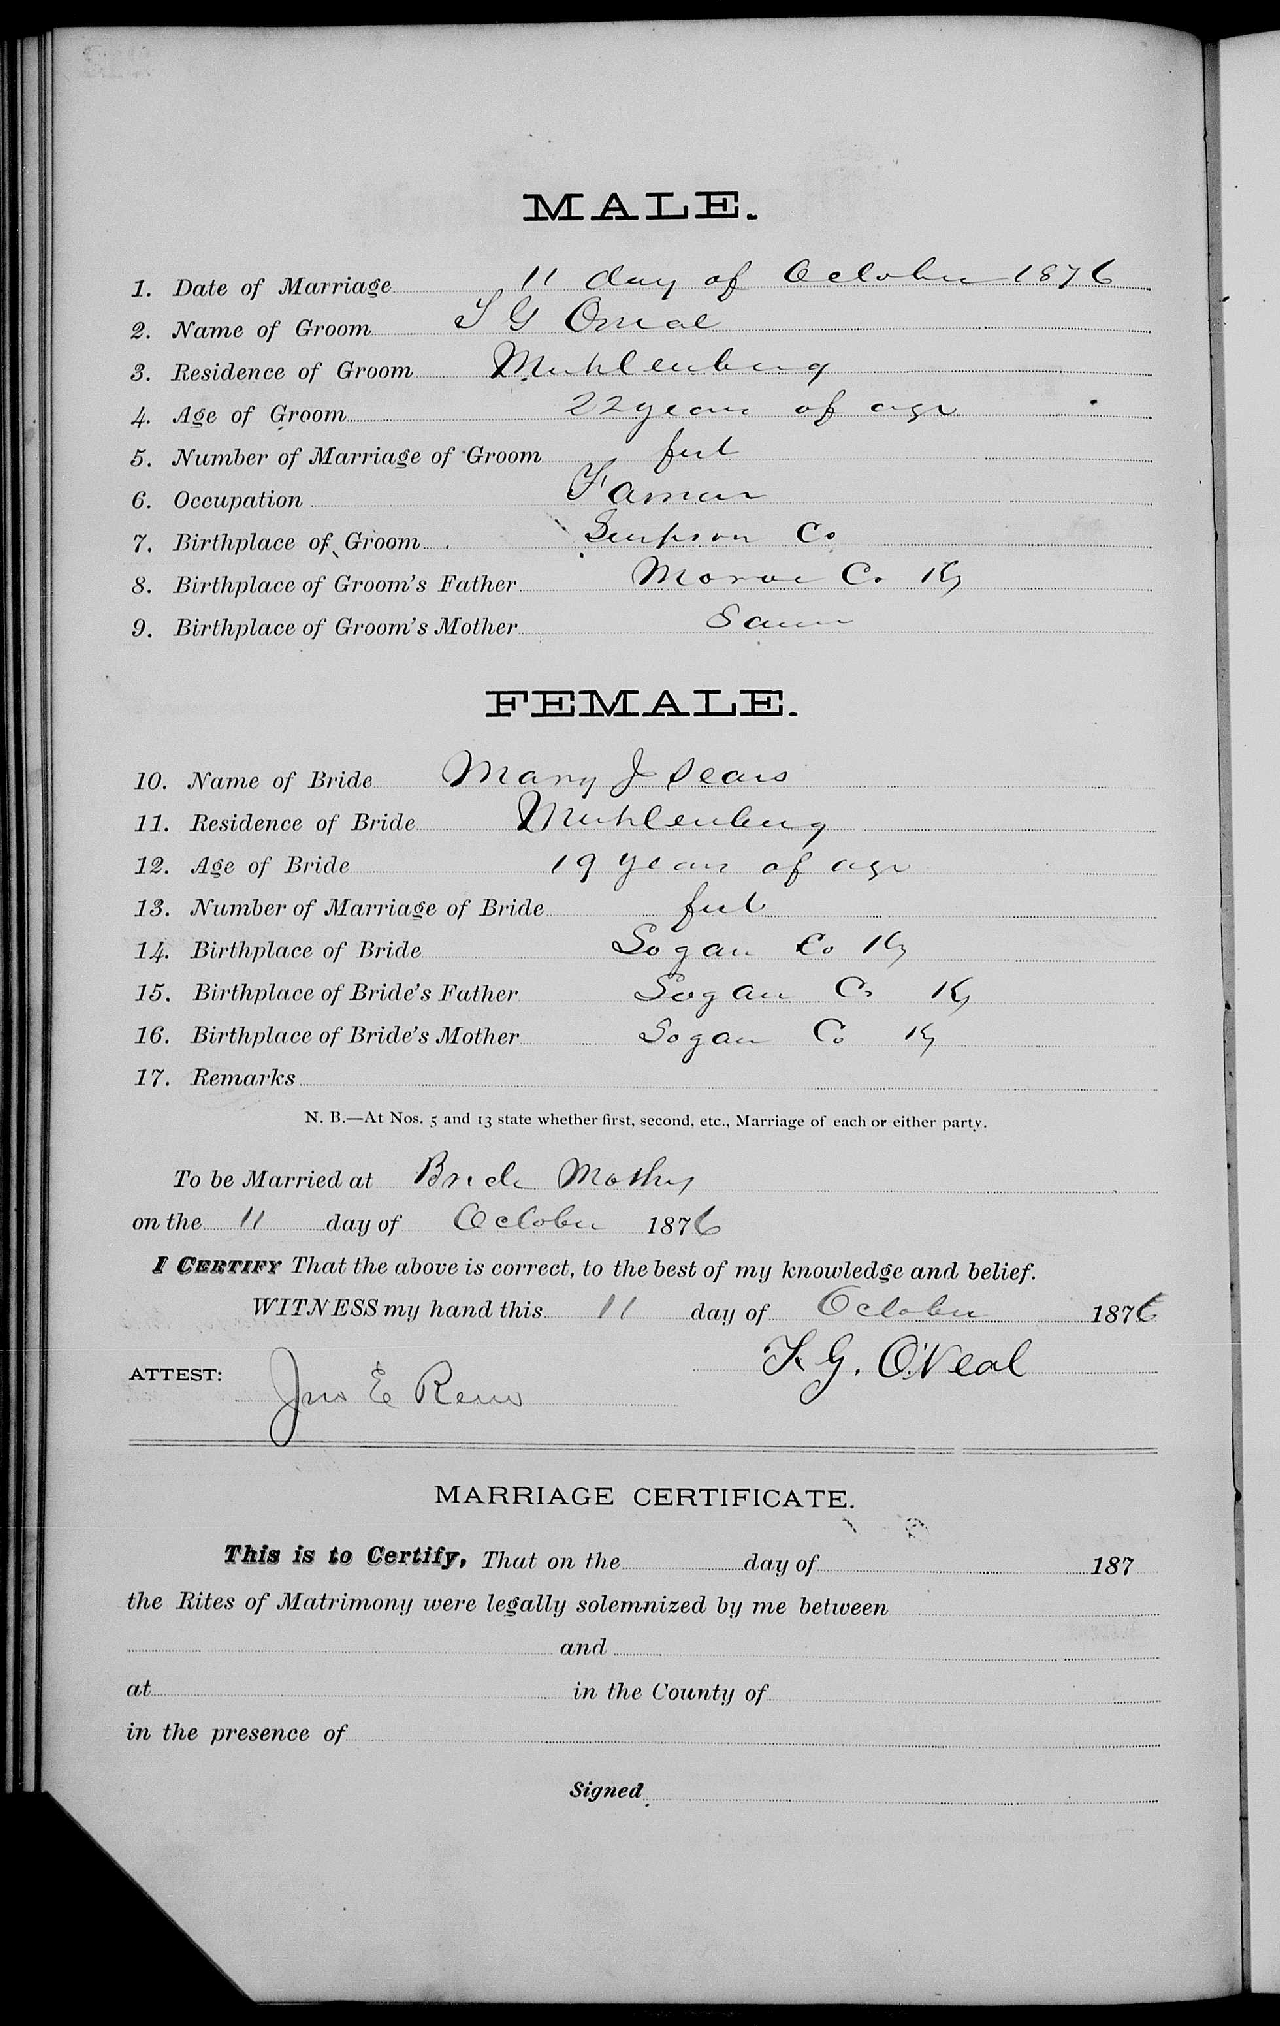 MALE.
1. Date of Marriage 11 day of October 1876
2. Name of Groom T G Oneal
3. Residence of Groom Muhlenburg
4. Age of Groom 22 years of age
5. Number of Marriage of Groom first
6. Occupation Farmer
7. Birthplace of Groom Simpson Co
8. Birthplace of Groom's Father Monroe Co Ky
9. Birthplace of Groom's Mother Same
FEMALE.
10. Name of Bride Mary J Sears
11. Residence of Bride Muhlenburg
12. Age of Bride 19 years of age
13. Number of Marriage of Bride first
14. Birthplace of Bride Logan Co Ky
15. Birthplace of Bride's Father Logan Co Ky
16. Birthplace of Bride's Mother Logan Co Ky
17. Remarks
N. B.—At Nos. 5 and 13 state whether first, second, etc., Marriage of each or either party.
To be Married at Bride Mothers
on the 11 day of October 1876
I CERTIFY That the above is correct, to the best of my knowledge and belief.
WITNESS my hand this 11 day of October 1876
G. O'Neal
ATTEST: Jno E Reno
MARRIAGE CERTIFICATE.
This is to Certify, That on the day of 187
the Rites of Matrimony were legally solemnized by me between
and
at in the County of
in the presence of
Signed